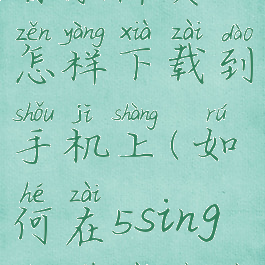 zěn yàng xià zài dào
怎样下载到
shǒu jī shàng rú
手机上(如
hé zài
何在5sing